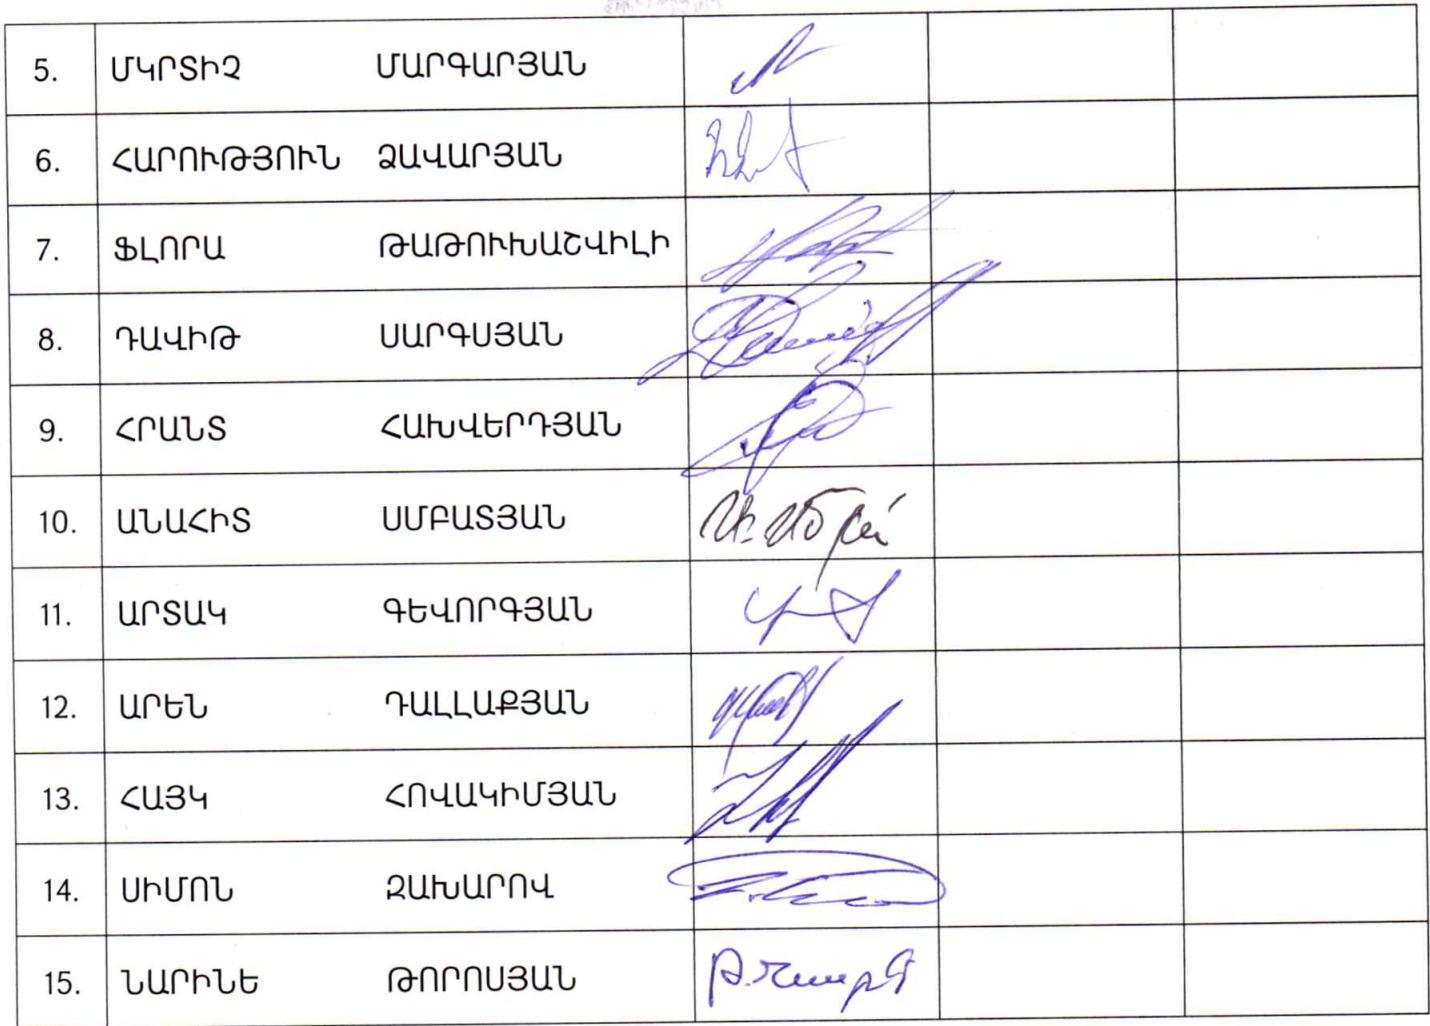 5. ՄԿՐՏԻՉ ՄԱՐԳԱՐՅԱՆ
6. ՀԱՐՈՒԹՅՈՒՆ ՁԱՎԱՐՅԱՆ
7. ՖԼՈՐԱ ԹԱԹՈՒԽԱՇՎԻԼԻ
8. ԴԱՎԻԹ ՍԱՐԳՍՅԱՆ
9. ՀՐԱՆՏ ՀԱԽՎԵՐԴՅԱՆ
10. ԱՆԱՀԻՏ ՍՄԲԱՏՅԱՆ
11. ԱՐՏԱԿ ԳԵՎՈՐԳՅԱՆ
12. ԱՐԵՆ ԴԱԼԼԱՔՅԱՆ
13. ՀԱՅԿ ՀՈՎԱԿԻՄՅԱՆ
14. ՍԻՄՈՆ ԶԱԽԱՐՈՎ
15. ՆԱՐԻՆԵ ԹՈՐՈՍՅԱՆ